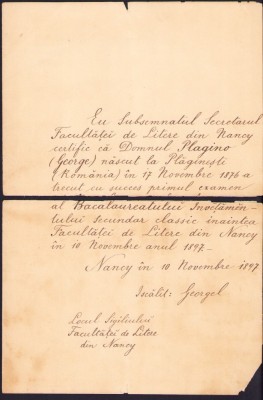 Eu Subsemnatul Secretarul
Facultăței de Litere din Nancy
certific că Domnul Plagino
(George) născut la Plăginești
(România) în 17 Novembre 1876 a
trecut cu succes primul examen
al Bacalaureatului Învețămên-
tului Secundar classic înaintea
Facultăței de Litere din Nancy
în 10 Novembre anul 1897 —
Nancy în 10 Novembre 1897
Iscălit: Georgel
Locul Sigiliului
Facultăței de Litere
din Nancy